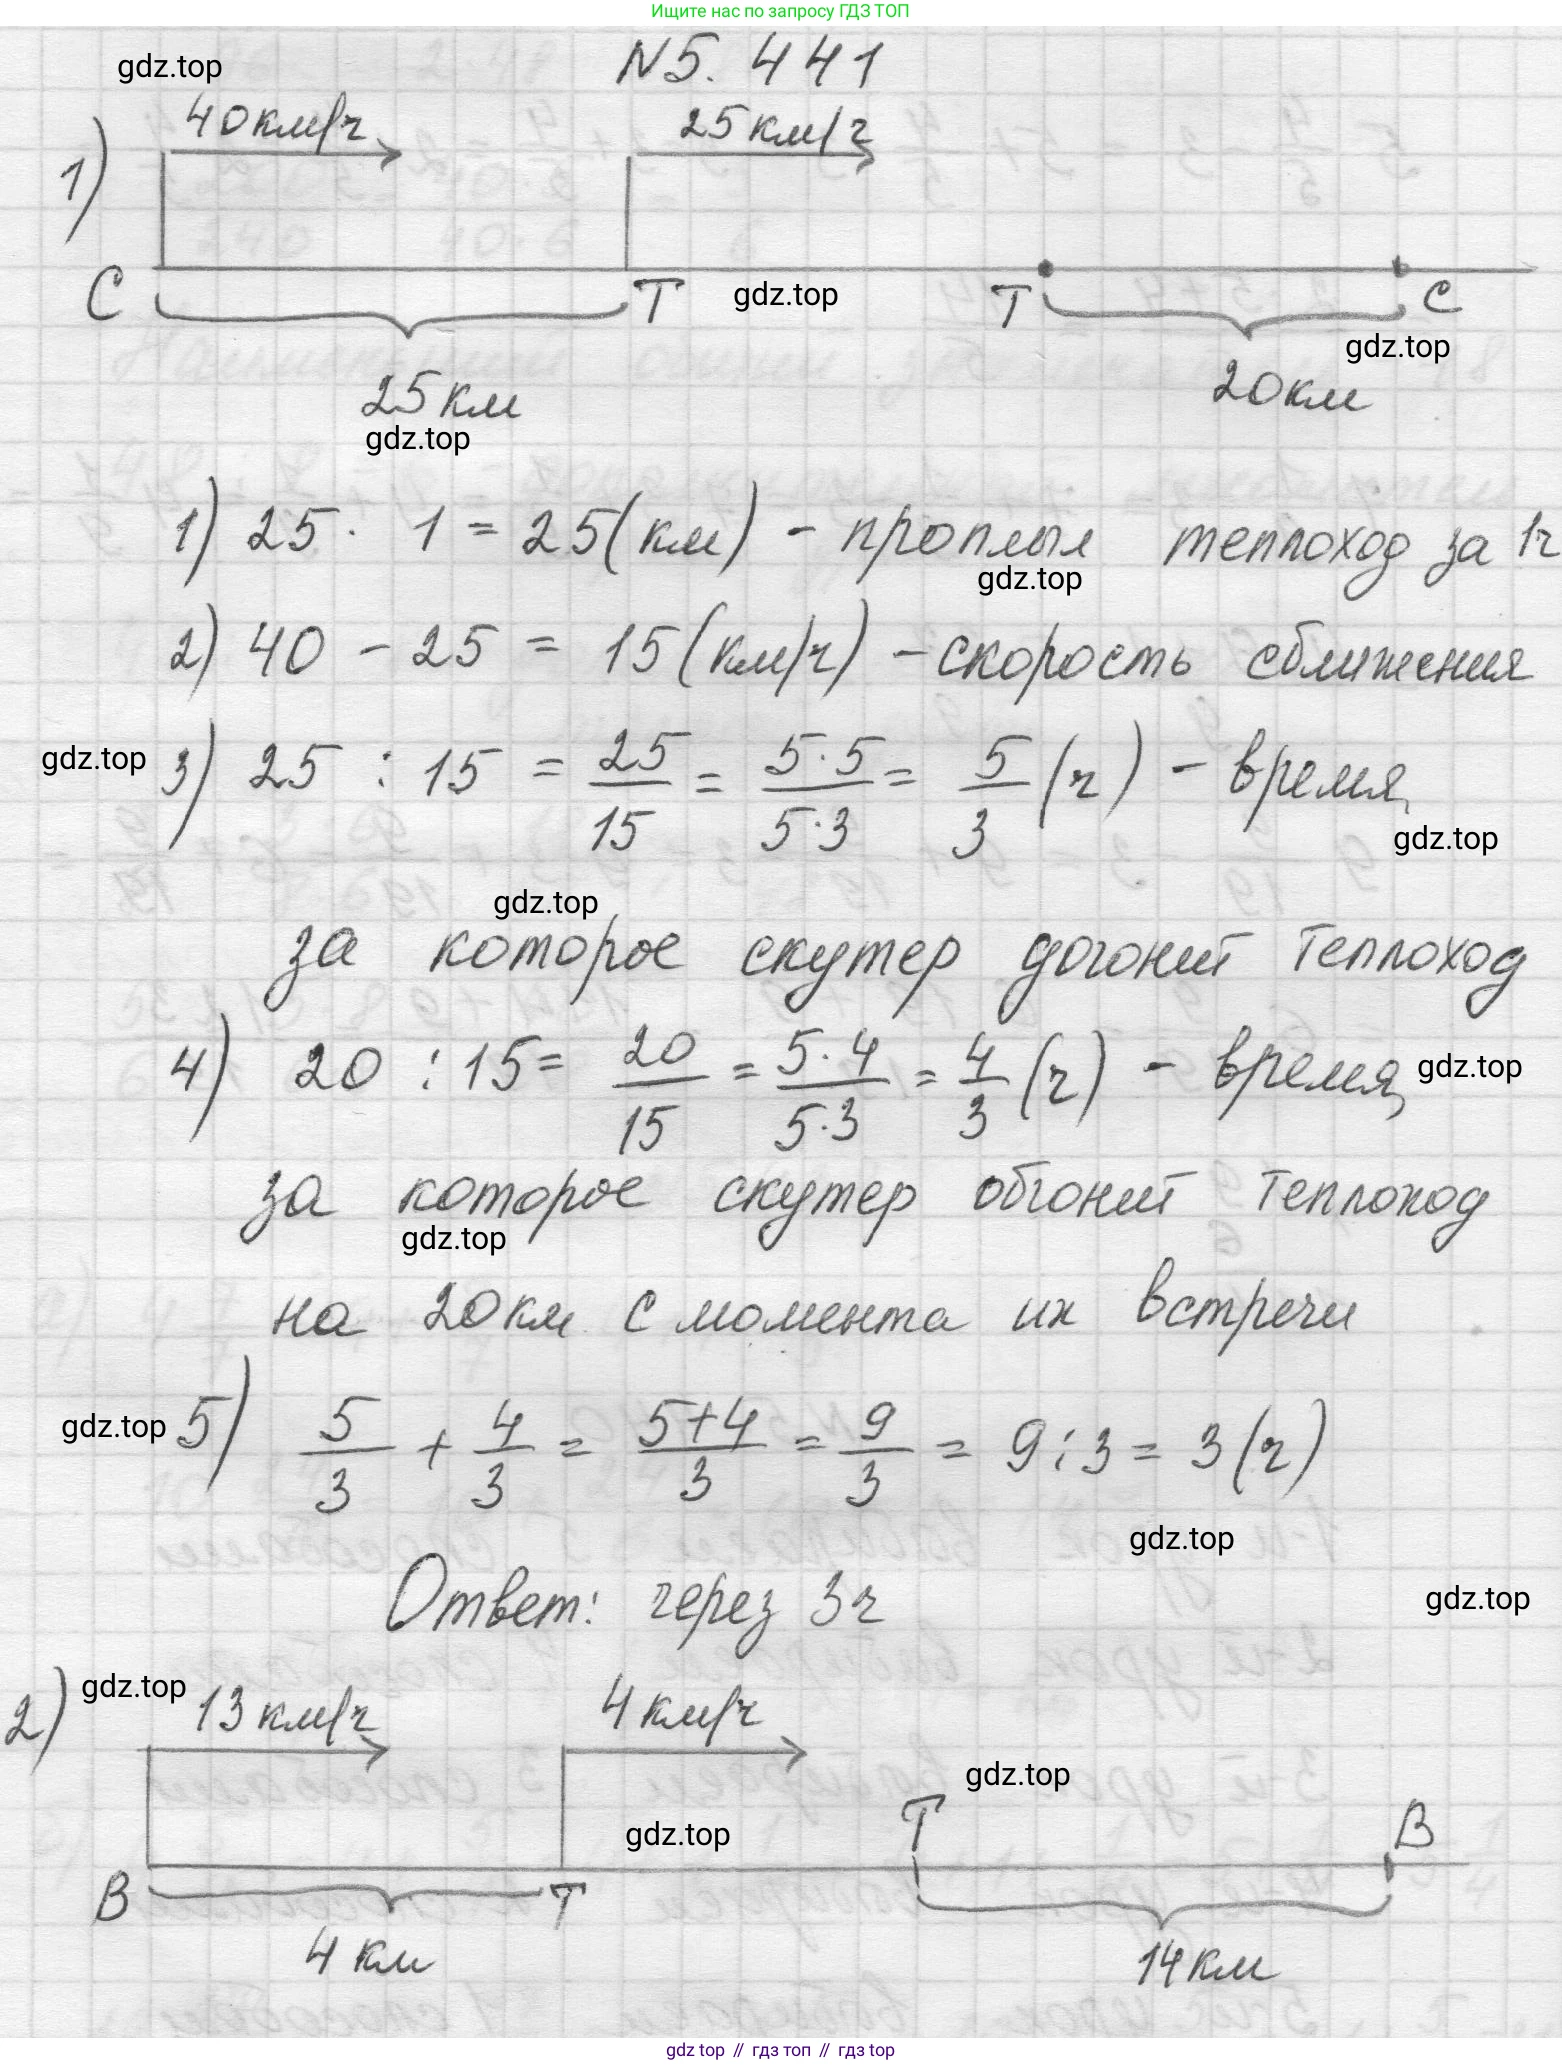 Ищите нас по запросу ГДЗ ТОП
gdz.top
N5. 441
1)
40км/ч
25км/ч
С
Т
gdz.top
Т
С
gdz.top
25км
20км
gdz.top
1) 25 · 1 = 25(км) - проплыл теплоход за 1ч
gdz.top
2) 40 - 25 = 15(км/ч) - скорость сближения
gdz.top
3) 25 : 15 = 25/15 = 5·5/5·3 = 5/3 (ч) - время,
gdz.top
gdz.top
за которое скутер догонит теплоход
4) 20 : 15 = 20/15 = 5·4/5·3 = 4/3 (ч) - время,
gdz.top
за которое скутер обгонит теплоход
gdz.top
на 20км с момента их встречи
gdz.top
5) 5/3 + 4/3 = 5+4/3 = 9/3 = 9:3 = 3(ч)
gdz.top
Ответ: через 3ч
gdz.top
2)
gdz.top
13км/ч
4км/ч
gdz.top
gdz.top
Т
В
В
Т
4 км
14км
gdz top // гдз топ // gdz top